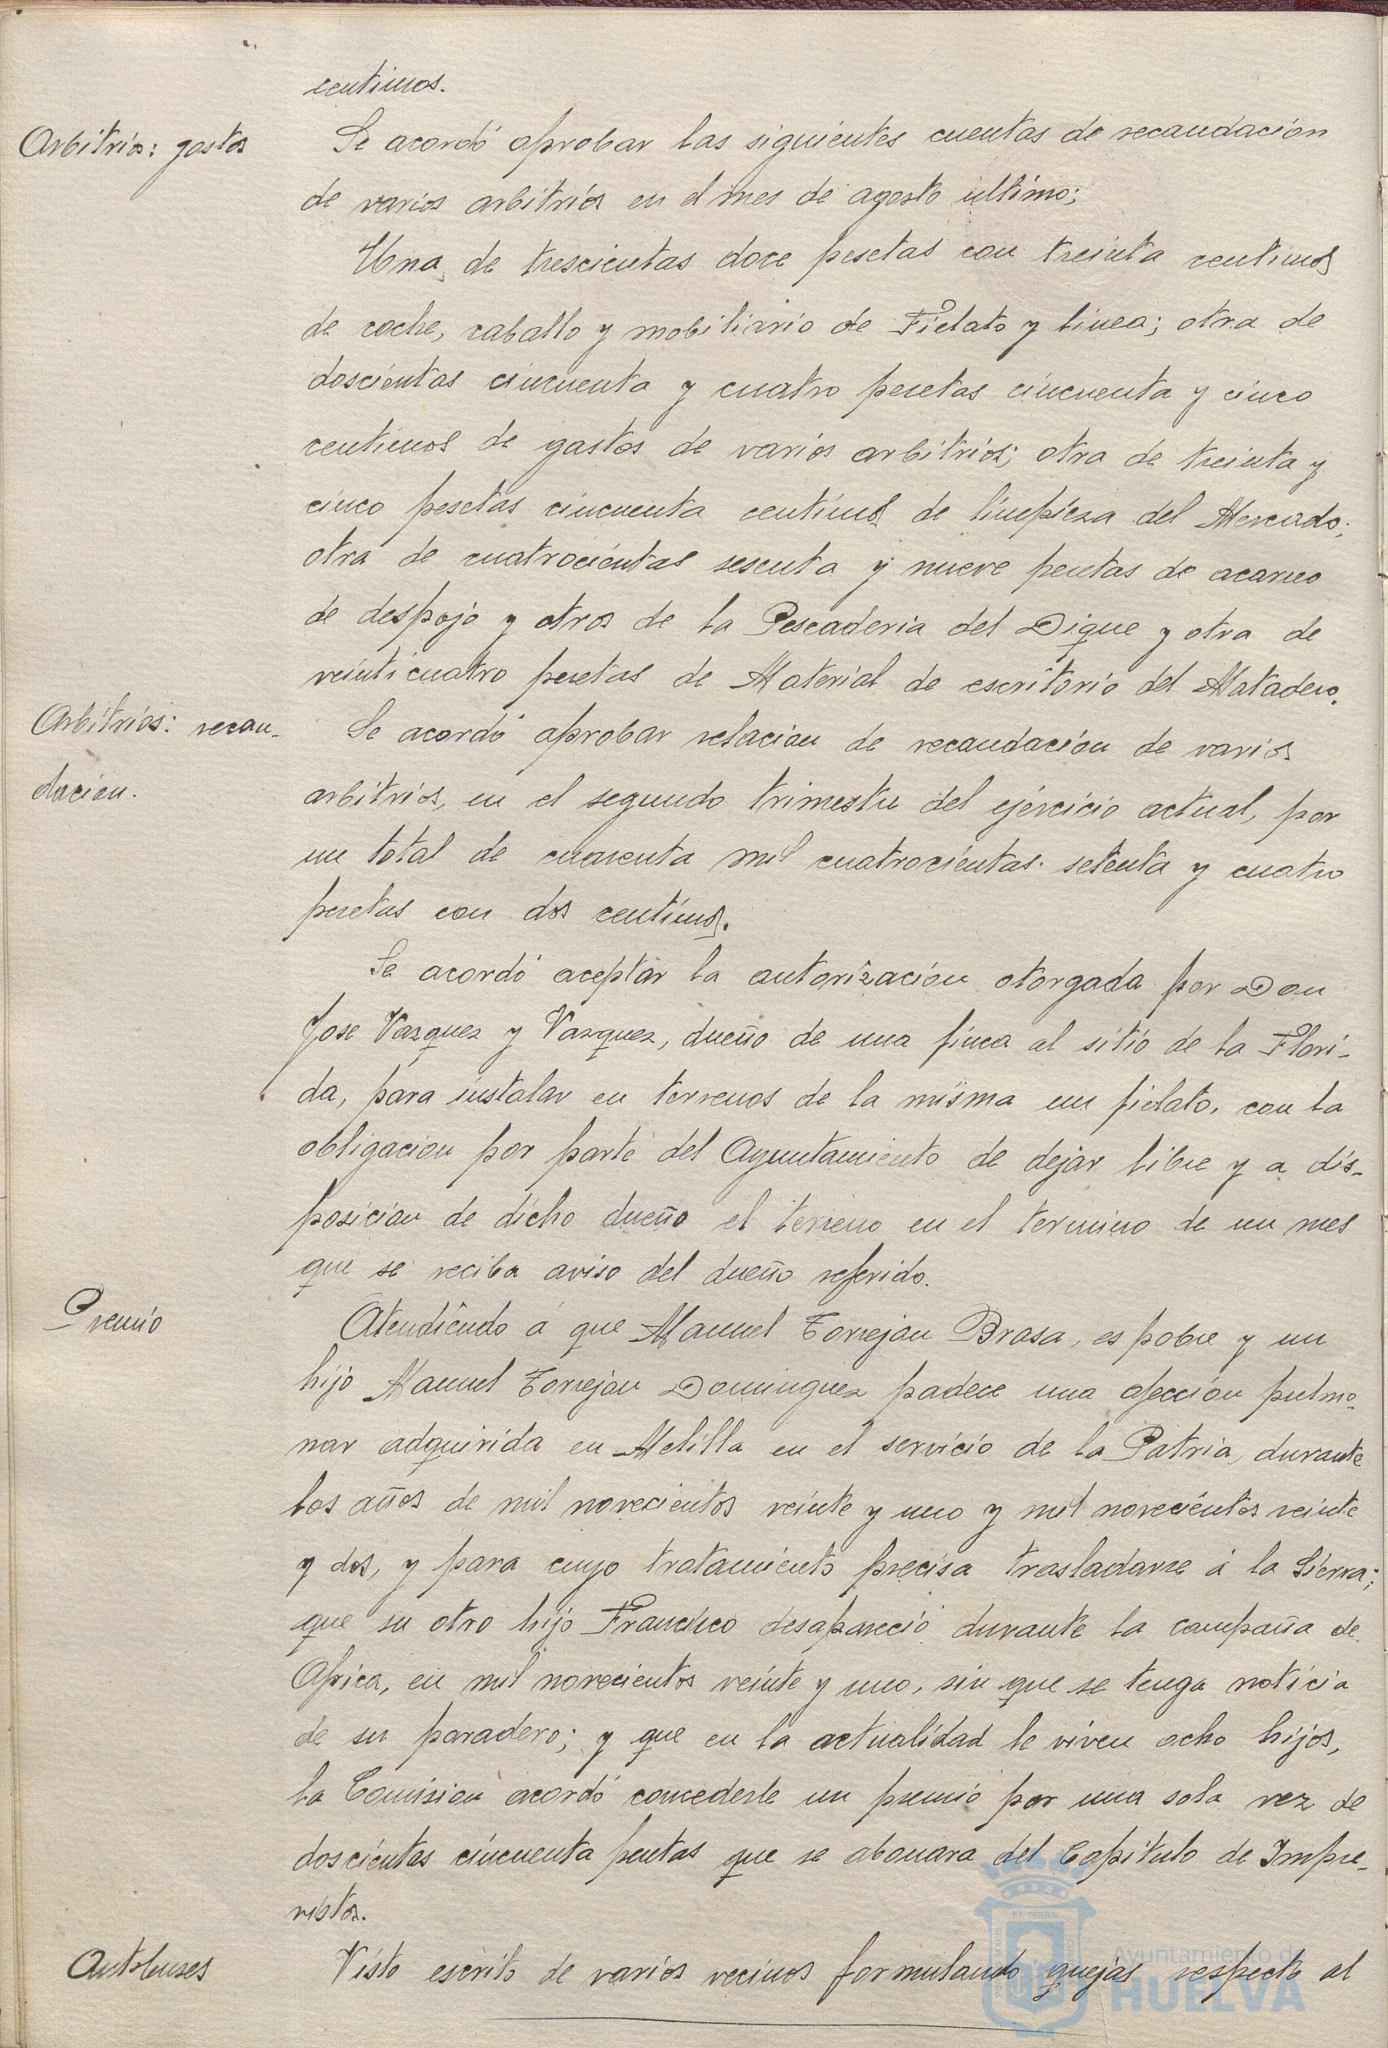 centimos.
Arbitrios: gastos
Se acordó aprobar las siguientes cuentas de recaudacion
de varios arbitrios en el mes de agosto ultimo;
Una, de trescientas doce pesetas con treinta centimos
de coche, caballo y mobiliario de Fielato y linea; otra de
doscientas cincuenta y cuatro pesetas cincuenta y cinco
centimos de gastos de varios arbitrios; otra de treinta y
cinco pesetas cincuenta centimos de limpieza del Mercado;
otra de cuatrocientas sesenta y nueve pesetas de acarreo
de despojo y otros de la Pescaderia del Dique y otra de
veinticuatro pesetas de Material de escritorio del Matadero.
Arbitrios: recau-
dacion.
Se acordó aprobar relacion de recaudacion de varios
arbitrios, en el segundo trimestre del ejercicio actual, por
un total de cuarenta mil cuatrocientas setenta y cuatro
pesetas con dos centimos.
Se acordó aceptar la autorizacion otorgada por Don
Jose Vazquez y Vazquez, dueño de una finca al sitio de la Flori-
da, para instalar en terrenos de la misma un fielato, con la
obligacion por parte del Ayuntamiento de dejar libre y a dis-
posicion de dicho dueño el terreno en el termino de un mes
que se reciba aviso del dueño referido.
Premio
Atendiendo á que Manuel Torrejon Brasa, es pobre y un
hijo Manuel Torrejon Dominguez padece una afeccion pulmo-
nar adquirida en Melilla en el servicio de la Patria, durante
los años de mil novecientos veinte y uno y mil novecientos veinte
y dos, y para cuyo tratamiento precisa trasladarse á la Sierra;
que su otro hijo Francisco desapareció durante la campaña de
Africa, en mil novecientos veinte y uno, sin que se tenga noticia
de su paradero; y que en la actualidad le viven ocho hijos,
la Comision acordó concederle un premio por una sola vez de
doscientas cincuenta pesetas que se abonara del Capitulo de Impre-
vistos.
Autobuses
Visto escrito de varios vecinos formulando quejas respecto al
Ayuntamiento de
HUELVA